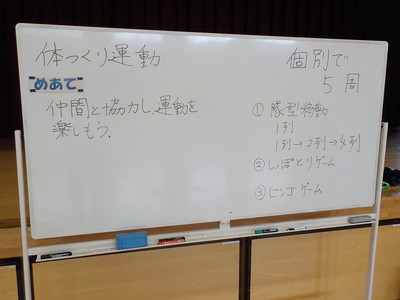 体つくり運動
めあて
仲間と協力し、運動を
楽しもう.
個別で
5周
① 隊型移動
1列
1列→2列→4列
② しっぽとりゲーム
③ ビンゴゲーム